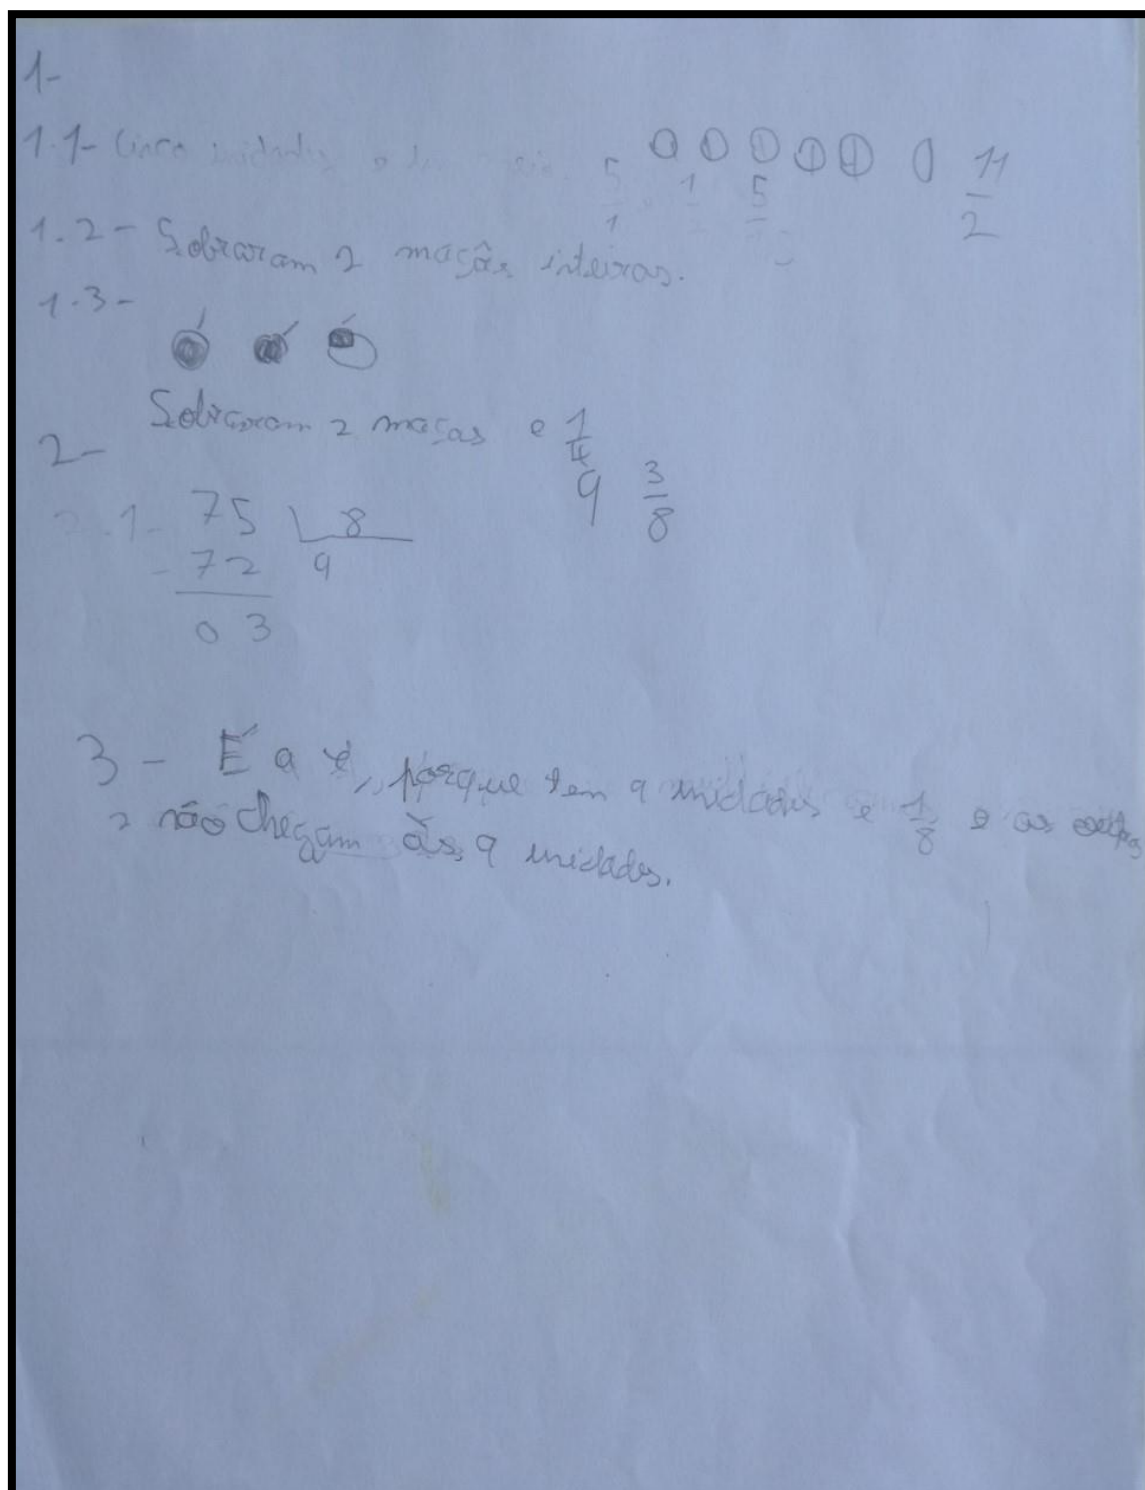 1-
1.1- Cinco 5/1 1 5 11/2
1.2- Sobraram 2 maçãs inteiras.
1.3-
Sobraram 2 maças e 1/4
2-
2.1- 75 8 9 3/8
- 72 9
03
3 - É a , porque tem 9 unidades e 1/8 e as
2 não chegam às 9 unidades.